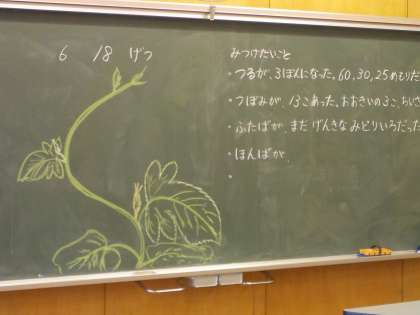 6 18 げつ
みつけたいこと
・つるが、3ぼんになった。60、30、25めもりた
・つぼみが、13こあった。おおきいの3こ、ちいさ
・ふたばが、まだげんきなみどりいろだった
・ほんばが、
・